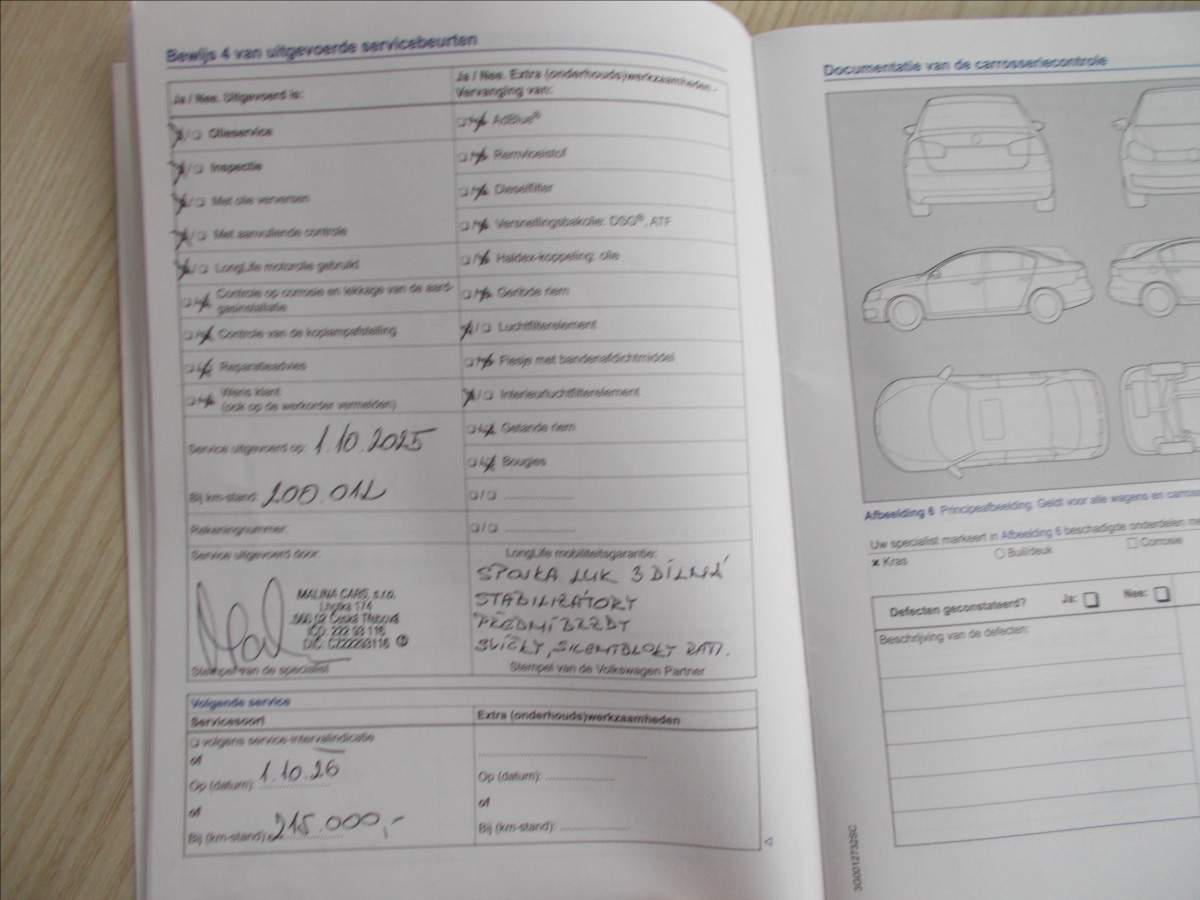 Bewijs 4 van uitgevoerde servicebeurten
Ja / Nee. Uitgevoerd is:
Ja / Nee. Extra (onderhouds)werkzaamheden -
Vervanging van:
Olieservice
Inspectie
Met olie verversen
Met aanvullende controle
LongLife motorolie gebruikt
Controle op corrosie en lekkage van de aard-
gasinstallatie
Controle van de koplampafstelling
Reparatieadvies
Wens klant
(ook op de werkorder vermelden)
Service uitgevoerd op: 1.10.2025
Bij km-stand: 200.012
Rekeningnummer:
AdBlue®
Remvloeistof
Dieselfilter
Versnellingsbakolie: DSG®, ATF
Haldex-koppeling: olie
Geribde riem
Luchtfilterelement
Flesje met bandenafdichtmiddel
Interieurluchtfilterelement
Getande riem
Bougies
Service uitgevoerd door:
MALINA CARS, s.r.o.
Lhotka 174
560 02 Česká Třebová
IČO: 222 93 116
DIČ: CZ22293116
Stempel van de specialist
LongLife mobiliteitsgarantie:
SPOJKA LUK 3 DÍLNÁ
STABILIZÁTORY
PŘEDNÍ BRZDY
SVÍČKY, SILENTBLOKY RAM.
Stempel van de Volkswagen Partner
Volgende service
Servicesoort
volgens service-intervalindicatie
of
Op (datum): 1.10.26
of
Bij (km-stand): 215.000,-
Extra (onderhouds)werkzaamheden
Op (datum):
of
Bij (km-stand):
Documentatie van de carrosseriecontrole
Afbeelding 6 Principeafbeelding: Geldt voor alle wagens en
Uw specialist markeert in Afbeelding 6 beschadigde onderdelen
× Kras
Buil/deuk
Corrosie
Defecten geconstateerd?
Ja:
Nee:
Beschrijving van de defecten:
3G0012732SC